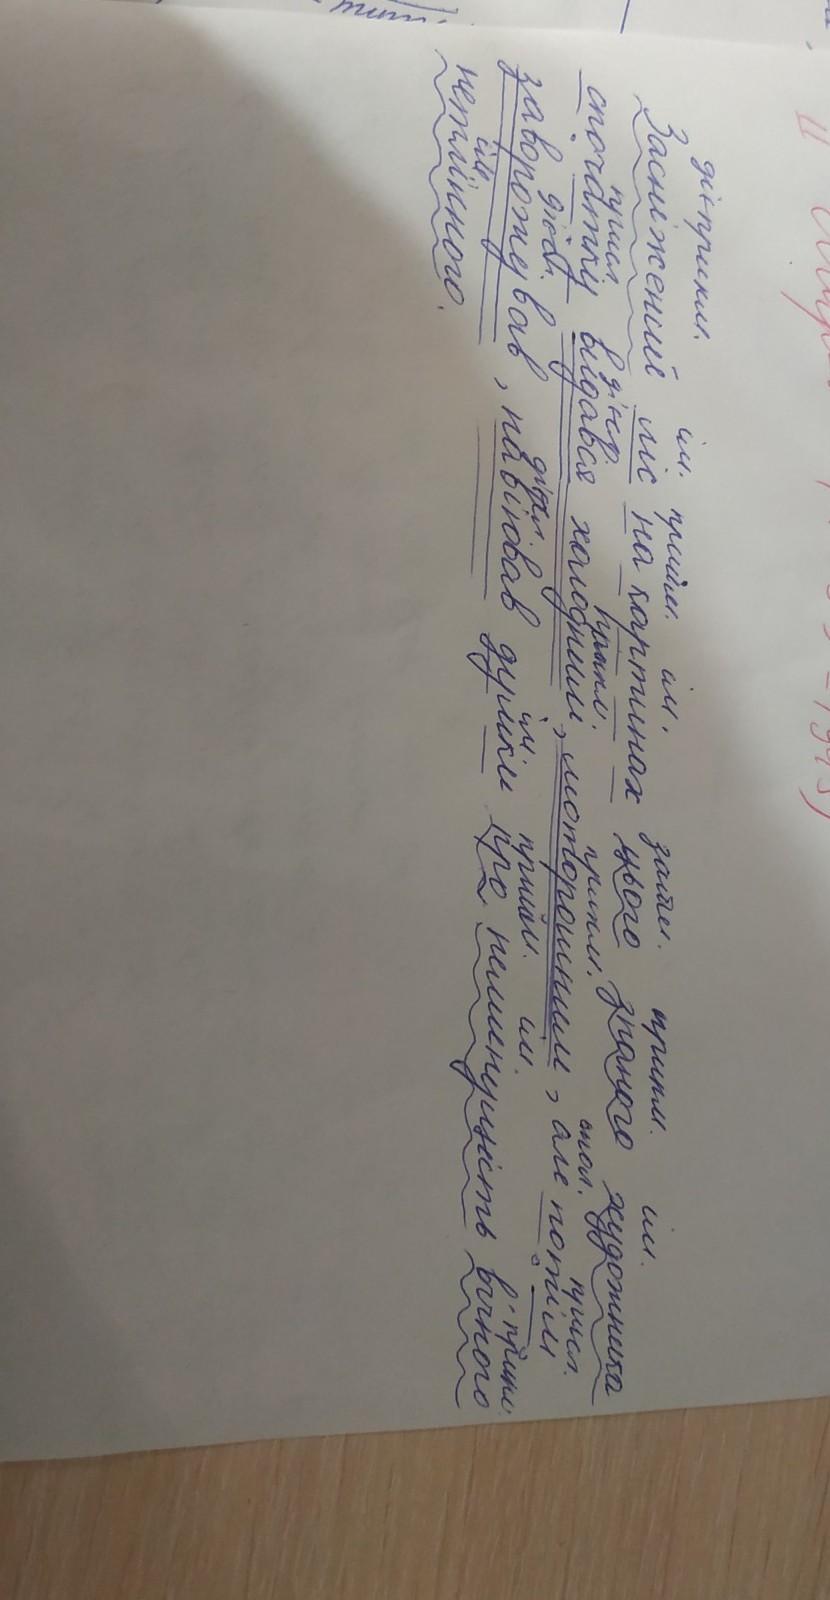 дієприкм. ім. прийм. ім. займ. прикм. ім.
Засніжений ліс на картинах цього знаного художника
присл. дієсл. прикм. прикм. спол. присл.
спочатку видався холодним, моторошним, але потім
дієсл. дієсл. ім. прийм. ім. прикм.
заворожував, навіював думки про неминучість вічного
ім.
нетлінного.